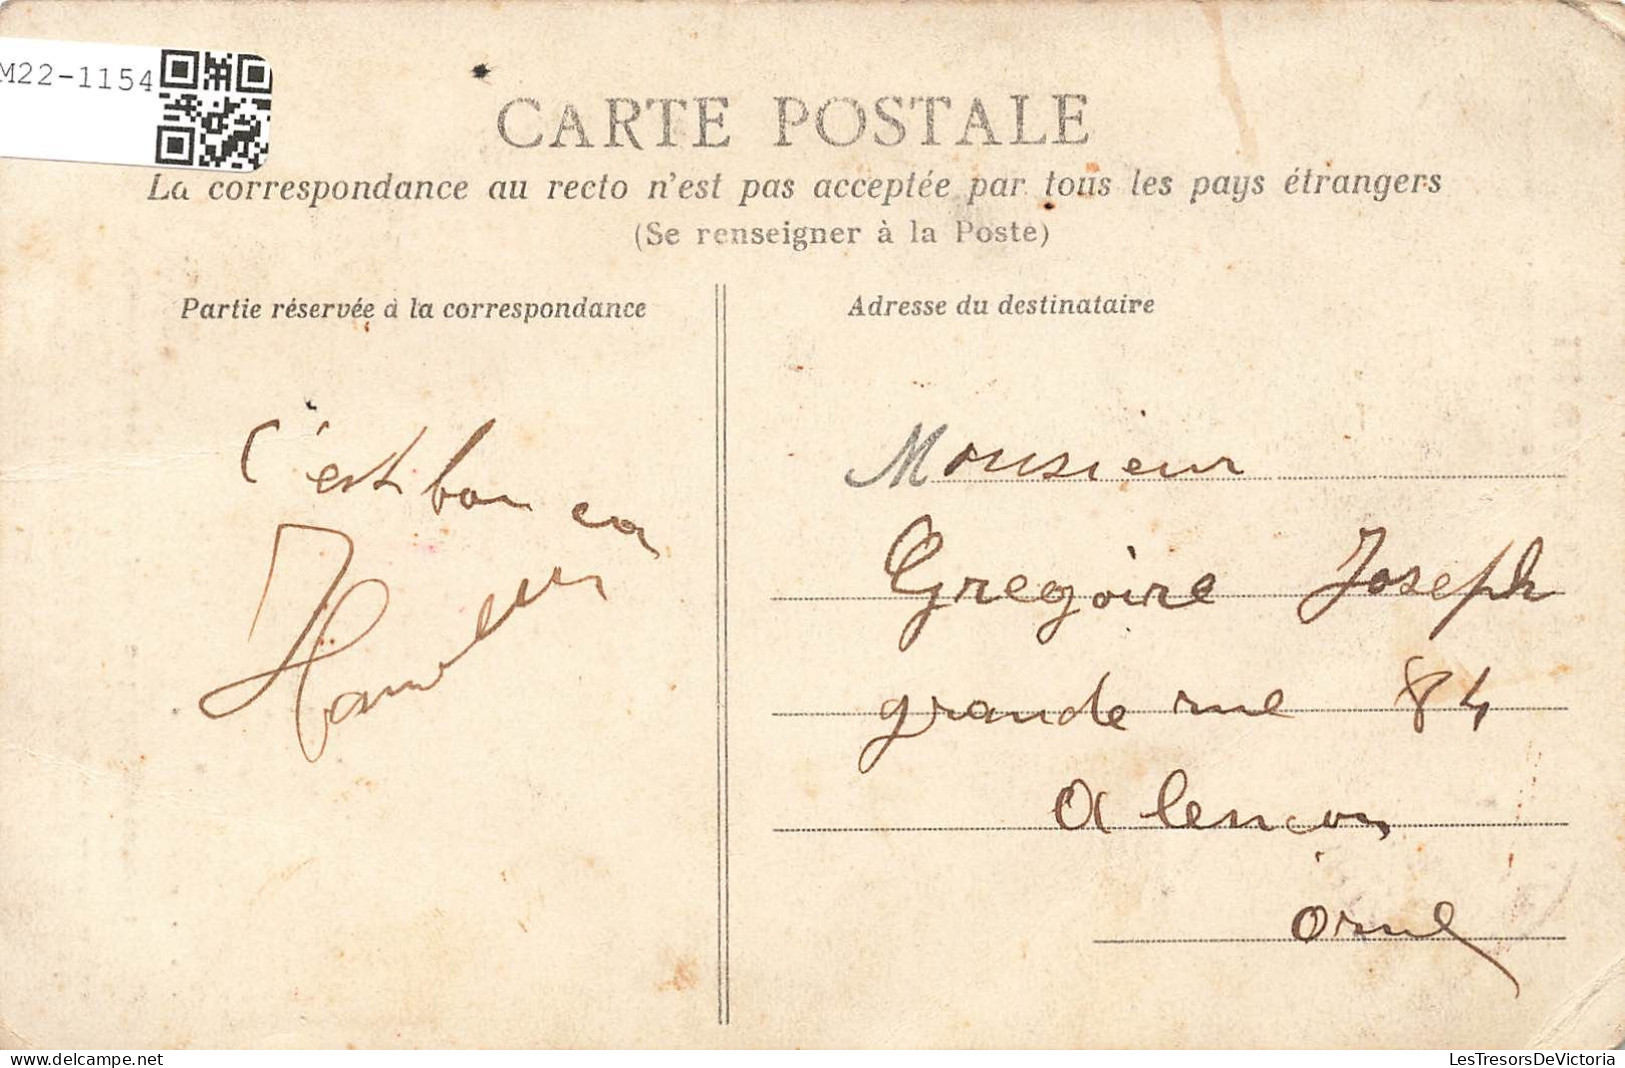 M22-1154
CARTE POSTALE
La correspondance au recto n'est pas acceptée par tous les pays étrangers
(Se renseigner à la Poste)
Partie réservée à la correspondance
Adresse du destinataire
C'est bon ça
Monsieur
Gregoire Joseph
grande rue 84
Alencon
Orne
www.delcampe.net
LesTresorsDeVictoria